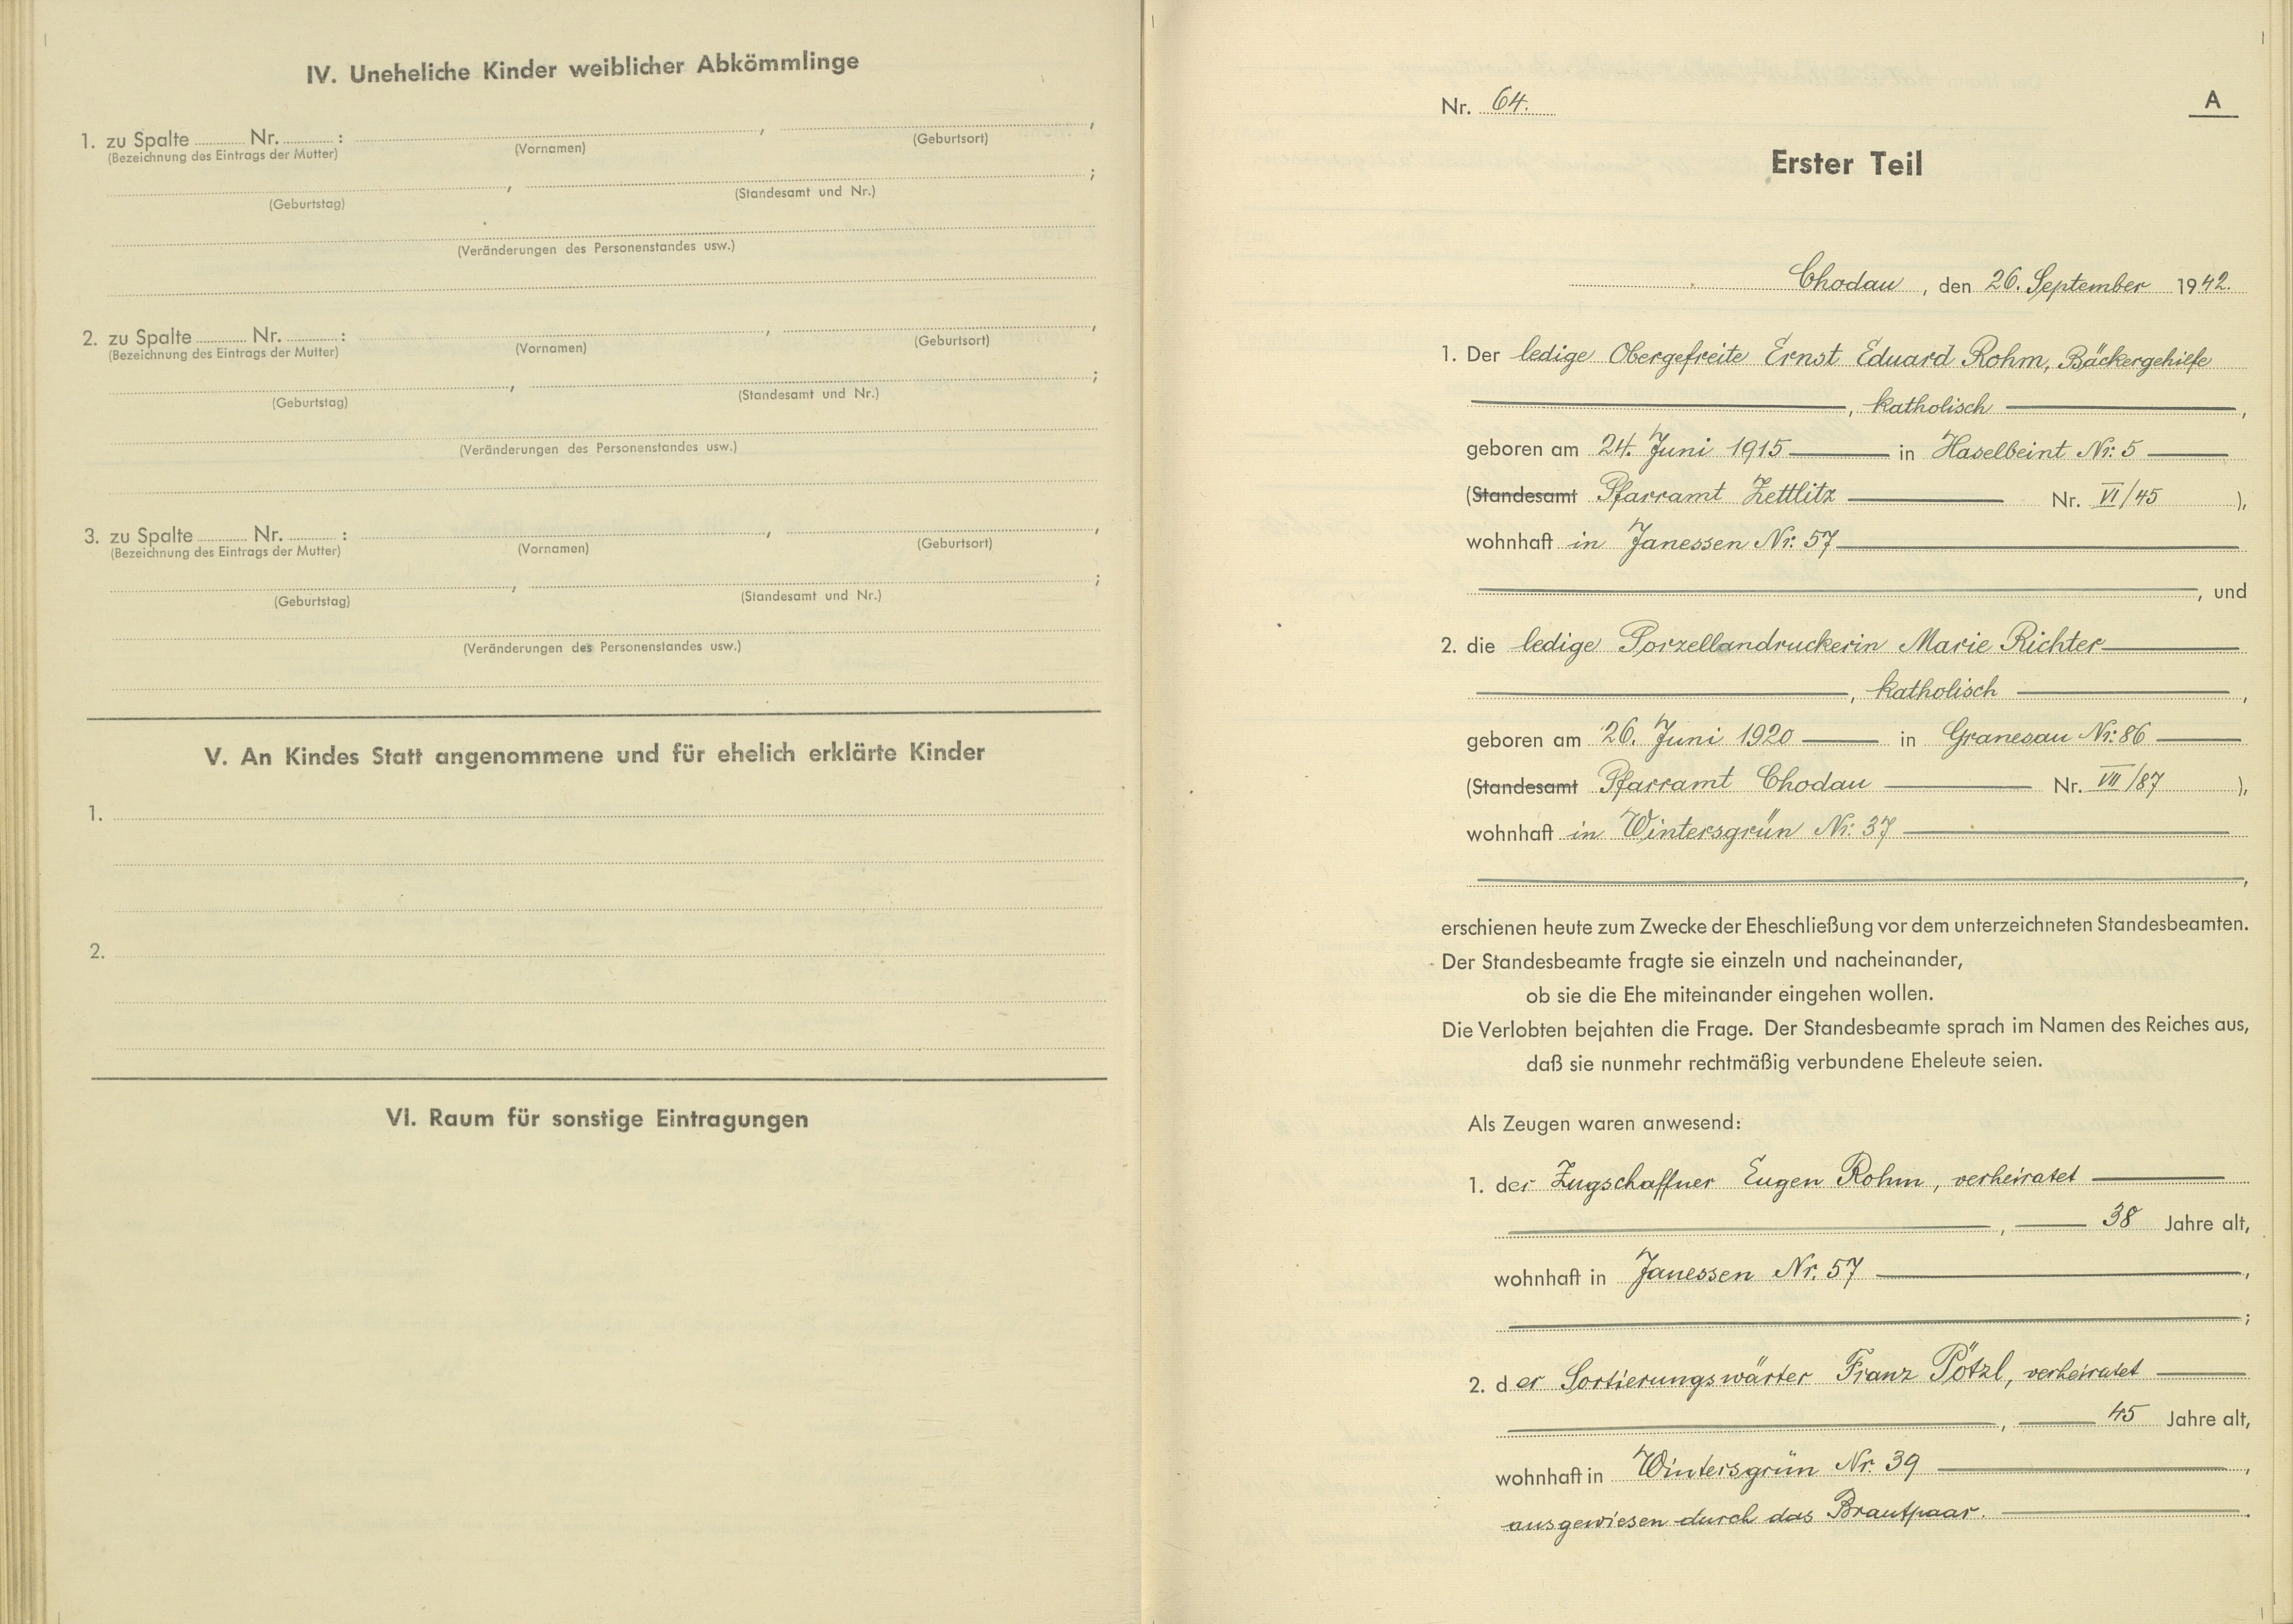 IV. Uneheliche Kinder weiblicher Abkömmlinge
1. zu Spalte ........ Nr. ........ : ........ , ........ ,
(Bezeichnung des Eintrags der Mutter) (Vornamen) (Geburtsort)
........ , ........ ;
(Geburtstag) (Standesamt und Nr.)
(Veränderungen des Personenstandes usw.)
2. zu Spalte ........ Nr. ........ : ........ , ........ ,
(Bezeichnung des Eintrags der Mutter) (Vornamen) (Geburtsort)
........ , ........ ;
(Geburtstag) (Standesamt und Nr.)
(Veränderungen des Personenstandes usw.)
3. zu Spalte ........ Nr. ........ : ........ , ........ ,
(Bezeichnung des Eintrags der Mutter) (Vornamen) (Geburtsort)
........ , ........ ;
(Geburtstag) (Standesamt und Nr.)
(Veränderungen des Personenstandes usw.)
V. An Kindes Statt angenommene und für ehelich erklärte Kinder
1.
2.
VI. Raum für sonstige Eintragungen
Nr. 64. A
Erster Teil
Chodau, den 26. September 1942.
1. Der ledige Obergefreite Ernst Eduard Rohm, Bäckergehilfe
, katholisch ,
geboren am 24. Juni 1915 in Haselbeint Nr: 5
(Standesamt Pfarramt Zettlitz Nr. VI/45 ),
wohnhaft in Janessen Nr: 57
, und
2. die ledige Porzellandruckerin Marie Richter
, katholisch ,
geboren am 26. Juni 1920 in Granesau Nr: 86
(Standesamt Pfarramt Chodau Nr. VII/87 ),
wohnhaft in Wintersgrün Nr: 37
,
erschienen heute zum Zwecke der Eheschließung vor dem unterzeichneten Standesbeamten.
Der Standesbeamte fragte sie einzeln und nacheinander,
ob sie die Ehe miteinander eingehen wollen.
Die Verlobten bejahten die Frage. Der Standesbeamte sprach im Namen des Reiches aus,
daß sie nunmehr rechtmäßig verbundene Eheleute seien.
Als Zeugen waren anwesend:
1. der Zugschaffner Eugen Rohm, verheiratet
, 38 Jahre alt,
wohnhaft in Janessen Nr. 57 ,
;
2. der Sortierungswärter Franz Pötzl, verheiratet
, 45 Jahre alt,
wohnhaft in Wintersgrün Nr. 39 ,
ausgewiesen durch das Brautpaar. .